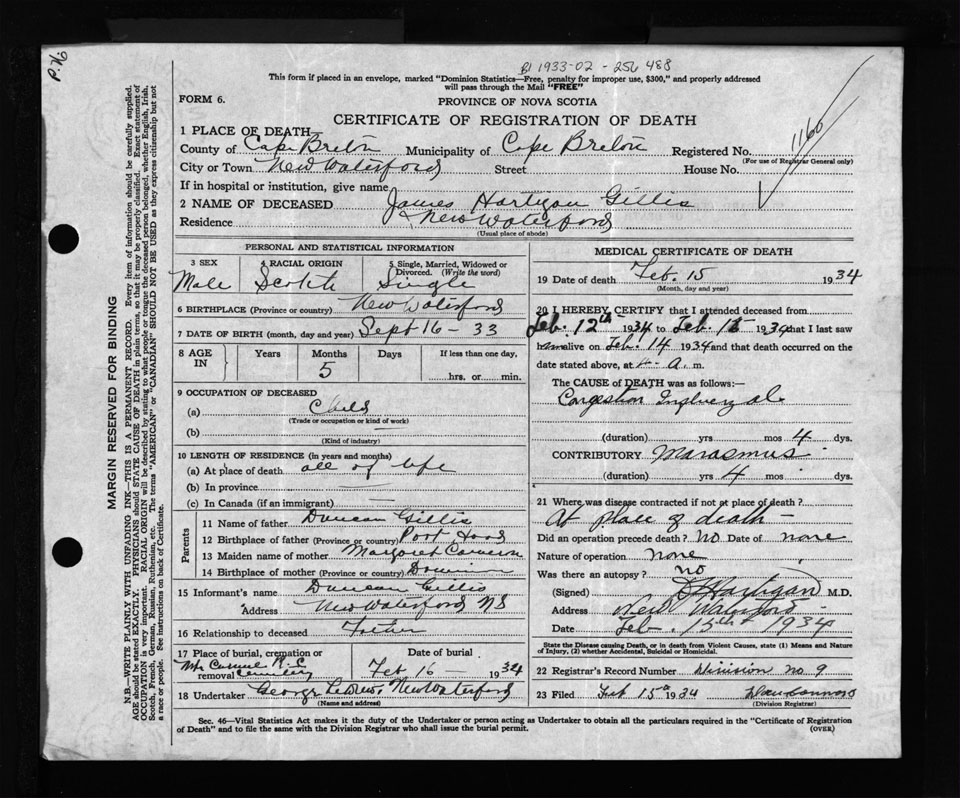 P. 76
B1 1933-02 - 256 488
This form if placed in an envelope, marked "Dominion Statistics—Free, penalty for improper use, $300," and properly addressed
will pass through the Mail "FREE"
FORM 6.
PROVINCE OF NOVA SCOTIA
CERTIFICATE OF REGISTRATION OF DEATH
1160
1 PLACE OF DEATH—
County of Cape Breton Municipality of Cape Breton Registered No.
(For use of Registrar General only)
City or Town New Waterford Street House No.
If in hospital or institution, give name
2 NAME OF DECEASED James Hartigan Gillis
Residence New Waterford
(Usual place of abode)
PERSONAL AND STATISTICAL INFORMATION
3 SEX 4 RACIAL ORIGIN 5 Single, Married, Widowed or Divorced. (Write the word)
Male Scotch Single
6 BIRTHPLACE (Province or country) New Waterford
7 DATE OF BIRTH (month, day and year) Sept 16 - 33
8 AGE IN Years Months Days If less than one day,
5 hrs. or min.
9 OCCUPATION OF DECEASED
(a) Child
(Trade or occupation or kind of work)
(b)
(Kind of industry)
10 LENGTH OF RESIDENCE (in years and months)
(a) At place of death all of life
(b) In province
(c) In Canada (if an immigrant)
Parents
11 Name of father Duncan Gillis
12 Birthplace of father (Province or country) Port Hood
13 Maiden name of mother Margaret Cameron
14 Birthplace of mother (Province or country) Dominion
15 Informant's name Duncan Gillis
Address New Waterford NS
16 Relationship to deceased Father
17 Place of burial, cremation or removal Mt Carmel R.C. Cemetery
Date of burial
Feb 16 - 1934
18 Undertaker George New Waterford
(Name and address)
MEDICAL CERTIFICATE OF DEATH
19 Date of death Feb. 15 1934
(Month, day and year)
20 I HEREBY CERTIFY that I attended deceased from
Feb. 12th 1934 to Feb. 1934 that I last saw
him alive on Feb. 14 1934 and that death occurred on
date stated above, at 4- a. m.
The CAUSE of DEATH was as follows:
Congestion Influenzal
(duration) yrs mos 4 dys.
CONTRIBUTORY Marasmus
(duration) yrs 4 mos dys.
21 Where was disease contracted if not at place of death?
At place of death -
Did an operation precede death? no Date of none
Nature of operation none
Was there an autopsy? no
(Signed) Hartigan M.D.
Address New Waterford
Date Feb. 15th 1934
State the Disease causing Death, or in death from Violent Causes, state (1) Means and Nature
of Injury, (2) whether Accidental, Suicidal or Homicidal.
22 Registrar's Record Number Division no 9
23 Filed Feb 15th 1934
(Division Registrar)
Sec. 46—Vital Statistics Act makes it the duty of the Undertaker or person acting as Undertaker to obtain all the particulars required in the "Certificate of Registration
of Death" and to file the same with the Division Registrar who shall issue the burial permit.
(OVER)
MARGIN RESERVED FOR BINDING
N.B.—WRITE PLAINLY WITH UNFADING INK—THIS IS A PERMANENT RECORD. Every item of information should be carefully supplied.
AGE should be stated EXACTLY. PHYSICIANS should STATE CAUSE OF DEATH in plain terms, so that it may be properly classified. Exact statement of
OCCUPATION is very important. RACIAL ORIGIN will be described by stating to what people or tongue the deceased person belonged, whether English, Irish,
Scotch, French, German, Russian, Ruthenian, etc. The terms "AMERICAN" or "CANADIAN" SHOULD NOT BE USED as they express citizenship but not
a race or people. See instructions on back of Certificate.